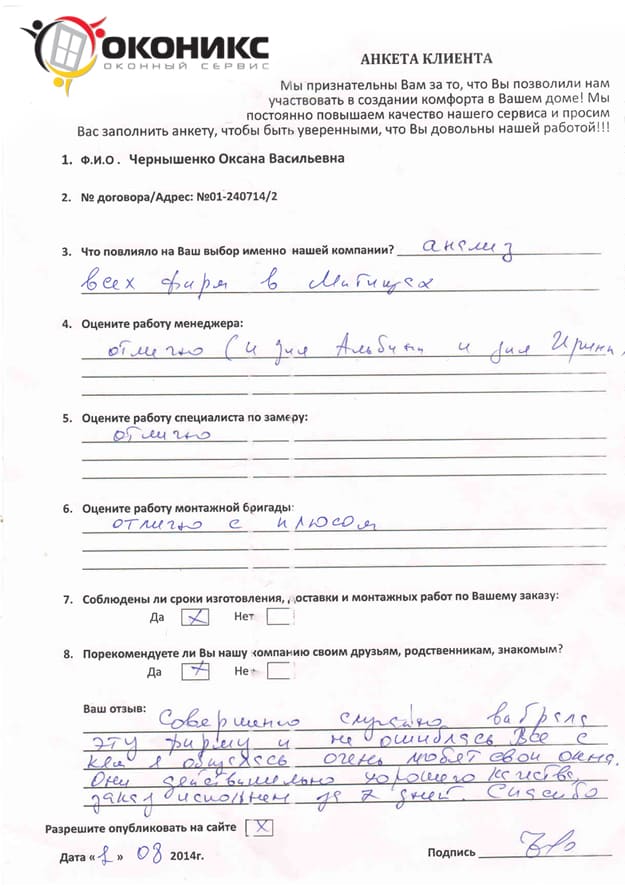 ОКОНИКС
ОКОННЫЙ СЕРВИС
АНКЕТА КЛИЕНТА
Мы признательны Вам за то, что Вы позволили нам
участвовать в создании комфорта в Вашем доме! Мы
постоянно повышаем качество нашего сервиса и просим
Вас заполнить анкету, чтобы быть уверенными, что Вы довольны нашей работой!!!
1. Ф.И.О. Чернышенко Оксана Васильевна
2. № договора/Адрес: №01-240714/2
3. Что повлияло на Ваш выбор именно нашей компании? анализ
всех фирм в Митищах
4. Оцените работу менеджера:
отлично (и для Альбины и для Ирины)
5. Оцените работу специалиста по замеру:
отлично
6. Оцените работу монтажной бригады:
отлично с плюсом
7. Соблюдены ли сроки изготовления, доставки и монтажных работ по Вашему заказу:
Да X Нет
8. Порекомендуете ли Вы нашу компанию своим друзьям, родственникам, знакомым?
Да X Нет
Ваш отзыв:
Совершенно случайно выбрала
эту фирму и не ошиблась. Все с
кем я общалась очень любят свои окна.
Они действительно хорошего качества,
заказ исполнен за 7 дней. Спасибо
Разрешите опубликовать на сайте X
Дата « » 08 2014г.
Подпись